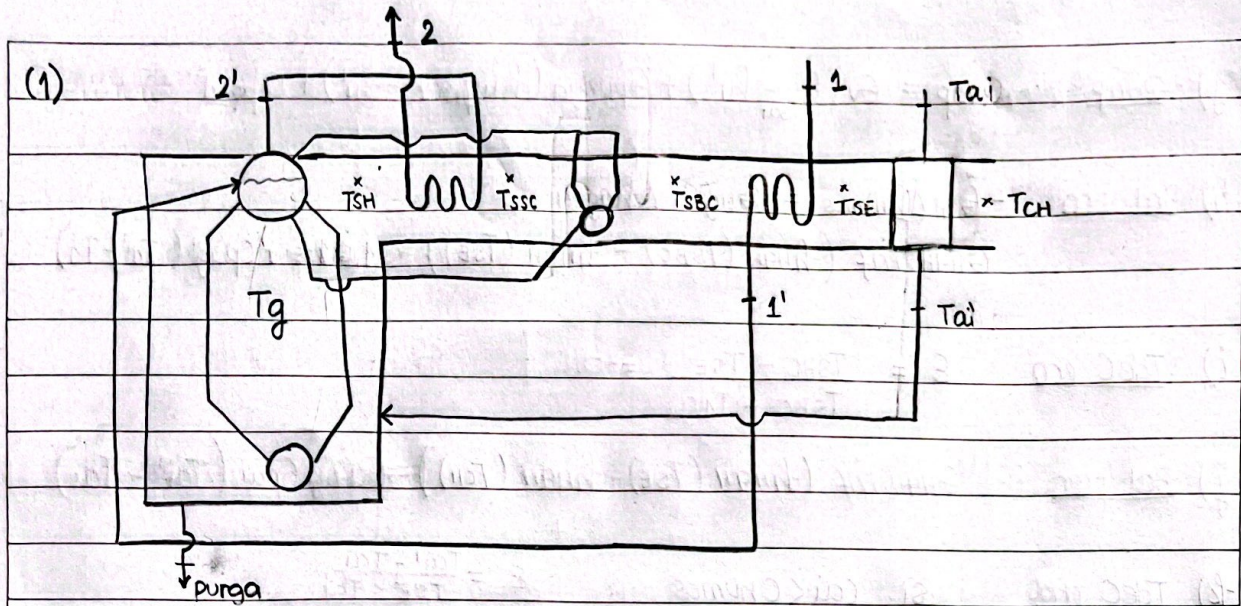 (1)
2
2'
1
Tai
TSH
TSSC
TSBC
TSE
TCH
Tg
1'
Tai
purga